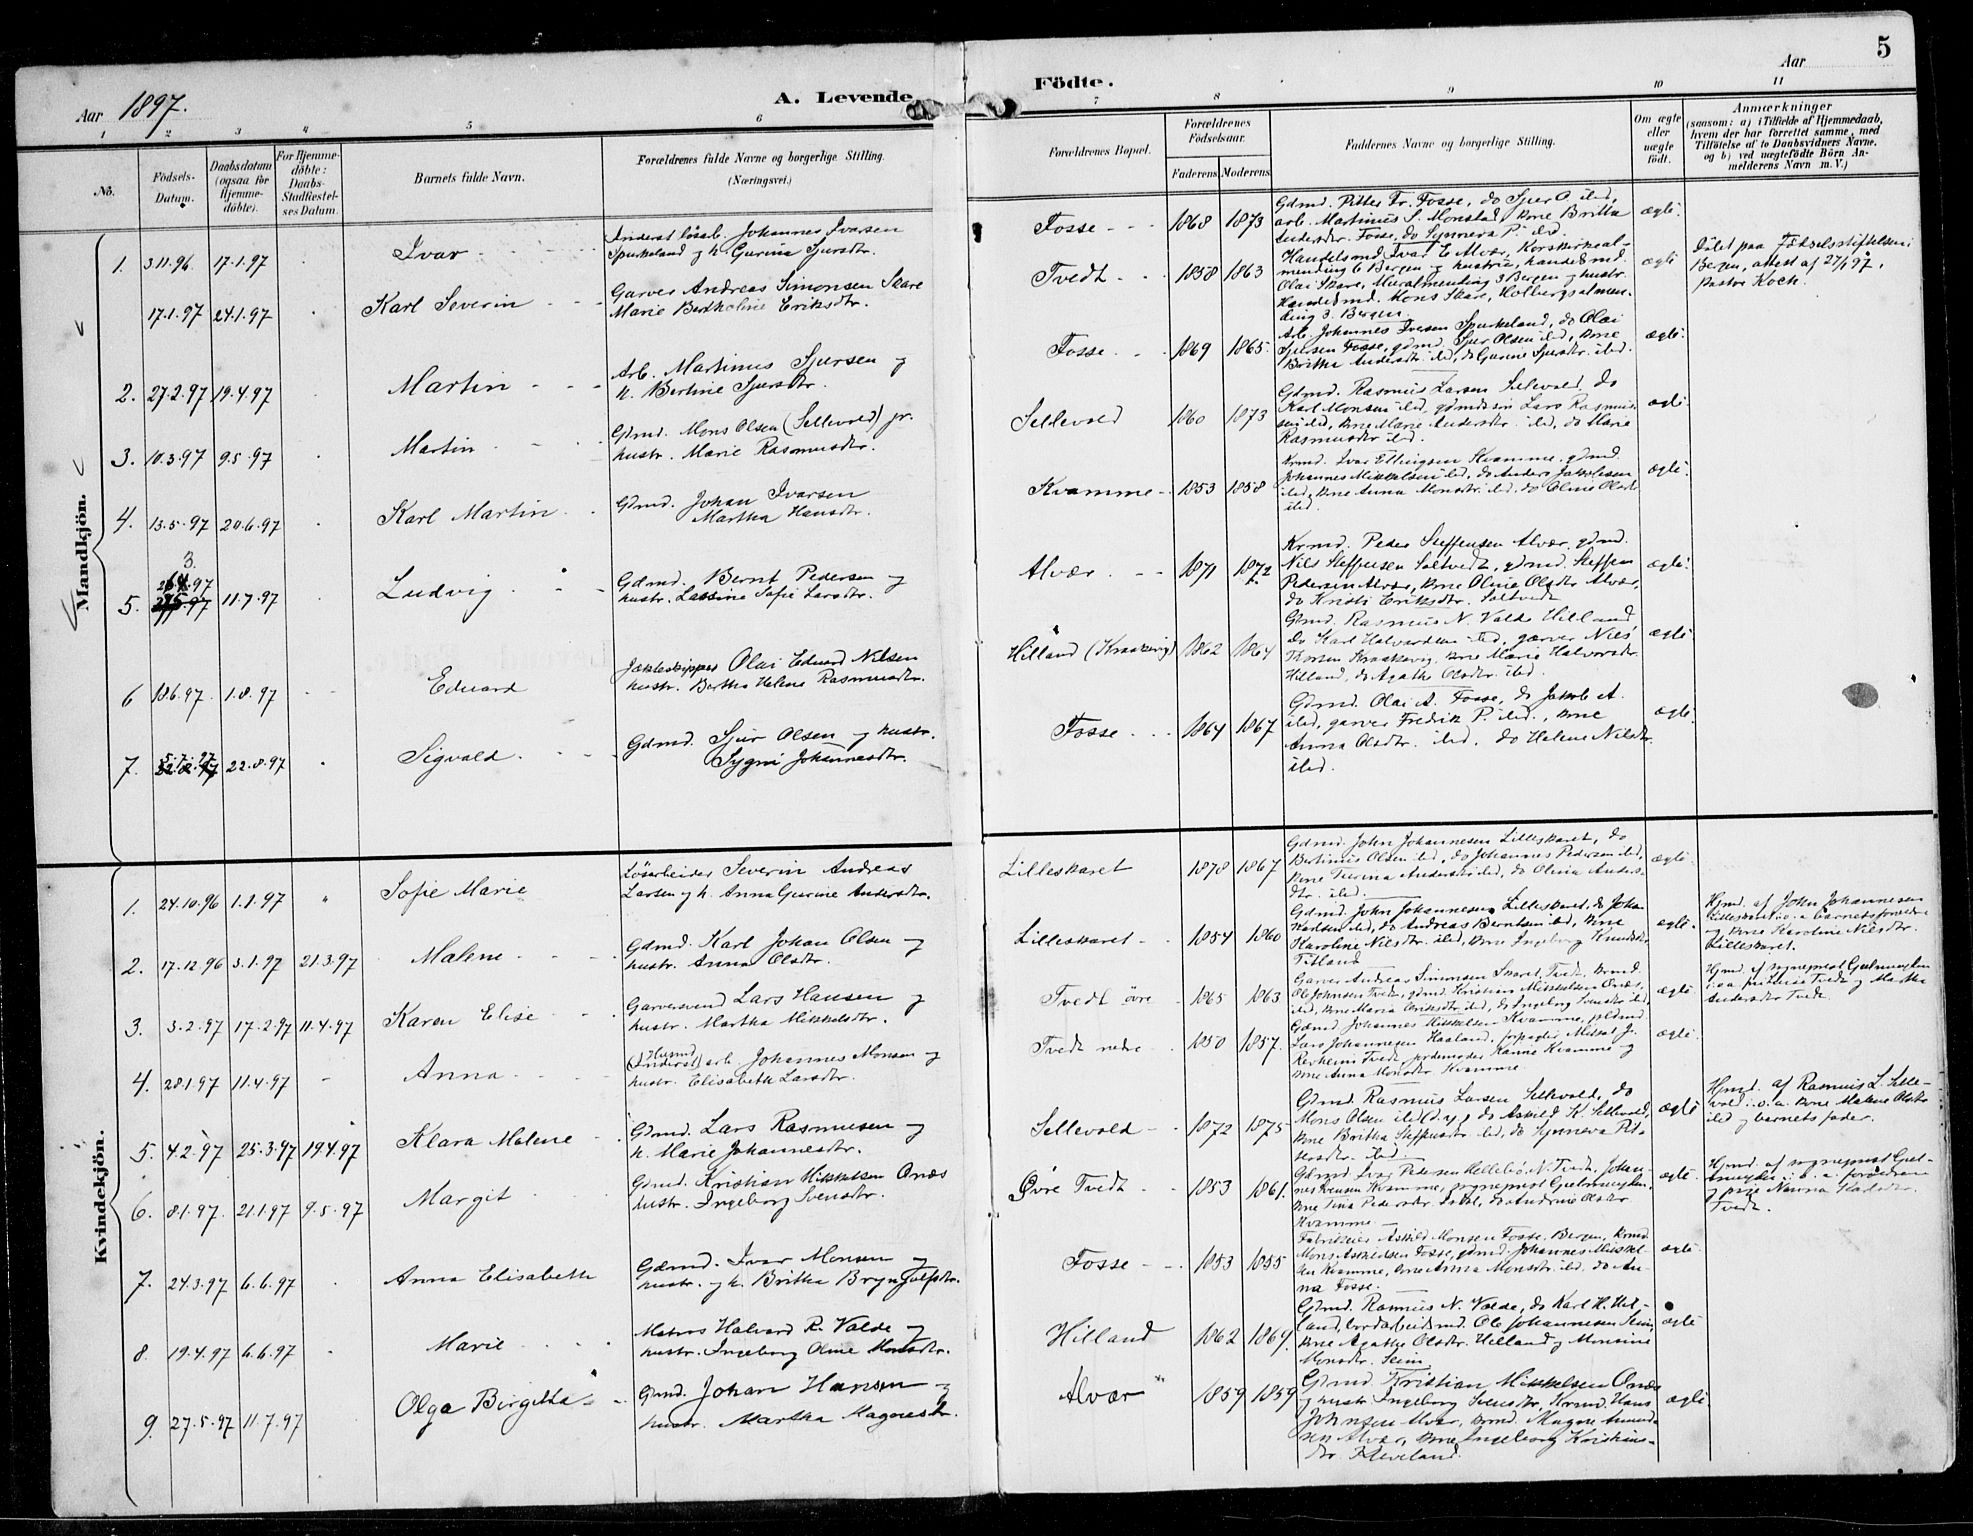 5
Aar 1897.
A. Levende
Födte.
Aar
1 2 3 4 5 6 7 8 9 10 11
No.
Födsels-Datum.
Daabsdatum (ogsaa för Hjemme-döbte).
For Hjemme-döbte: Daabs-Stadfæstel-ses Datum.
Barnets fulde Navn.
Forældrenes fulde Navne og borgerlige Stilling.
(Næringsvei.)
Forældrenes Bopæl.
Forældrenes Födselsaar.
Faderens Moderens
Faddernes Navne og borgerlige Stilling.
Om ægte eller uægte födt.
Anmærkninger
(saasom: a) i Tilfælde af Hjemmedaab,
hvem der har forrettet samme, med
Tilföielse af to Daabsvidners Navne,
og b) ved uægtefödte Börn An-
melderens Navn m. V.)
Mandkjön.
1. 3.11.96 17.1.97 Ivar
Inderst løsarb. Johannes Ivarsen
Spurkeland og h. Gurina Sjursdtr.
Fosse 1868 1873
Gdmd. Petter Fr. Fosse, do Sjur O. ibd,
arb. Martinus S. Monstad, kne Britha
Andersdtr. Fosse, do Synneva P. ibd.
ægte
17.1.97 24.1.97 Karl Severin
Garver Andreas Simonsen Skare
Marie Bertholine Eriksdtr.
Tvedt 1858 1863
Handelsmd Ivar E Alvær, Korskirkeal-
mending 6 Bergen og hustru, handelsmd.
Olai Skare, Muralmending 3 Bergen og hustr.
Handelsmd. Mons Skare, Holbergsalmen-
ding 3. Bergen
ægte
Døbt paa Fødselsstiftelsen i
Bergen, attest af 27/1 97,
pastor Koch.
2. 27.2.97 19.4.97 Martin
Arb. Martinus Sjursen og
h. Bertine Sjursdtr.
Fosse 1869 1865
Arb. Johannes Iversen Spurkeland, do Olai
Sjursen Fosse, gdmd. Sjur Olsen ibd, kne
Britha Andersdtr ibd, do Gurine Sjursdtr. ibd.
ægte
3. 10.3.97 9.5.97 Martin
Gdmd. Mons Olsen (Sellevold) jr.
hustr. Marie Rasmusdtr.
Sellevold 1860 1873
Gdmd. Rasmus Larsen Sellevold, do
Karl Monsen ibd, gdmdssøn Lars Rasmus-
sen ibd, kne Marie Andersdtr. ibd, do Marie
Rasmusdtr ibd.
ægte
4. 13.5.97 20.6.97 Karl Martin
Gdmd. Johan Ivarsen
Martha Hansdtr.
Kvamme 1853 1858
Krmd. Ivar Ellingsen Kvamme, gdmd.
Johannes Mikkelsen ibd, do Anders Jakobsen
ibd, kne Anna Monsdtr. ibd, do Oline Olsdtr
ibd.
ægte
5. 11.7.97 Ludvig
Gdmd. Bernt Pedersen og
hustr. Lassine Sofie Larsdtr.
Alvær 1871 1872
Krmd. Peder Steffensen Alvær, gdmd.
Nils Steffensen Saltvedt, gdmd. Steffen
Pedersen Alvær, kne Oline Olsdtr Alvær,
do Kristi Eriksdtr. Saltvedt
ægte
6 18.6.97 1.8.97 Eduard
Jækteskipper Olai Eduard Nilsen
hustr. Bertha Helene Rasmusdtr.
Hilland (Kraakevig) 1862 1864
Gdmd. Rasmus N. Valde Hilland
do Karl Halvardsen ibd, garver Nils
Thorsen Kraakevig, kne Marie Halvorsdtr.
Hilland, do Agathe Olsdtr. ibd.
ægte
7. 5.7.97 22.8.97 Sigvald
Gdmd. Sjur Olsen og hustr.
Sygni Johannesdtr.
Fosse 1864 1867
Gdmd. Olai A. Fosse, do Jakob A.
ibd, garver Fredrik P. ibd., kne
Anna Olsdtr. ibd, do Helene Nilsdtr.
ibd.
ægte
Kvindekjön.
1. 24.10.96 1.1.97 Sofie Marie
Løsarbeider Severin Andreas
Larsen og h. Anna Gurine Andersdtr.
Lilleskaret 1878 1867
Gdmd. John Johannesen Lilleskaret, do
Bertinius Olsen ibd, do Johannes Pedersen ibd,
kne Turina Andersdtr ibd, do Olina Anders-
dtr. ibd.
ægte
2. 17.12.96 3.1.97 21.3.97 Malene
Gdmd. Karl Johan Olsen og
hustr. Anna Olsdtr.
Lilleskaret 1854 1860
Gdmd. John Johannesen Lilleskaret, do Johan
Karlsen ibd, do Andreas Berntsen ibd, kne
Karoline Nilsdtr. ibd, kne Ingeborg Knudsdtr
Titland
ægte
Hjmd. af John Johannesen
Lilleskaret i o. a. barnets forældre
og kne Karoline Nilsdtr.
Lilleskaret.
3. 3.2.97 17.2.97 11.4.97 Karen Elise
Garversvend Lars Hansen og
hustr. Martha Mikkelsdtr.
Tvedt øvre 1865 1863
Garver Andreas Simonsen Skaret, Tvedt, krmd.
Ole Johnsen Tvedt, gdmd. Kristian Mikkelsen Onæs,
ibd, kne Maria Eriksdtr ibd, do Ingeborg Svensdtr ibd
ægte
Martha
Andersdtr Tvedt.
4. 28.1.97 11.4.97 Anna
(Husmd Inderst) arb. Johannes Monsen og
hustr. Elisabeth Larsdtr.
Tvedt nedre 1850 1857
Gdmd. Johannes Mikkelsen Kvamme,
Lars Johannesen Haaland, forpagter Mikkal J.
Revheim Tvedt, jordemoder Hanne Kvamme og
kne Anna Monsdtr Kvamme.
ægte
5. 4.2.97 25.3.97 19.4.97 Klara Malene
Gdmd. Lars Rasmusen og
h. Marie Johannesdtr.
Sellevold 1872 1875
Gdmd. Rasmus Larsen Sellevold, do
Mons Olsen ibd (d.y.), do Askild K. Sellevold,
kne Britha Steffensdtr. ibd, do Synneva Pit-
tersdtr. ibd.
ægte
Hjmd. af Rasmus L. Selle-
vold i. o. a. kne Malene Olsdtr
ibd og barnets fader.
6. 8.1.97 21.1.97 9.5.97 Margit
Gdmd. Kristian Mikkelsen Onæs
hustr. Ingeborg Svensdtr.
Øvre Tvedt 1853 1861
Gdmd. Ivar Pedersen Hellebø, N. Tvedt, Johan-
nes Knusen Kvamme, sogneprest Gjelmuyden,
kne Tina Pedersdtr. do Andrine Olsdtr
Kvamme
ægte
Hjmd. af sogneprest Gjel-
muyden i. o. a. forældrene
og pige Nanna Karlsdtr.
Tvedt.
7. 24.3.97 6.6.97 Anna Elisabeth
Gdmd. Ivar Monsen og
hustr. og h. Britha Brynjulfsdtr.
Fosse 1853 1855
Fabrikeier Askild Monsen Fosse, Bergen, krmd.
Mons Askildsen Fosse, gdmd. Johannes Mikkel-
sen Kvamme, kne Anna Monsdtr. ibd, do An-
na Fosse.
ægte
8. 19.4.97 6.6.97 Marie
Matros Halvard R. Valde og
hustr. Ingeborg Oline Monsdtr.
Hilland 1862 1864
Gdmd. Rasmus N. Valde, do Karl H. Hil-
land, jordarbeidsmd. Ole Johannesen Seim,
kne Agathe Olsdtr. Hilland og Monsine
Monsdtr. Seim
ægte
9. 27.5.97 11.7.97 Olga Birgitta
Gdmd. Johan Hansen og
hustr. Martha Magnesdtr.
Alvær 1859 1859
Gdmd Kristian Mikkelsen Onæs
og hustr. Ingeborg Svensdtr, Krmd. Hans
Johnsen Alvær, krmd. Magne Amund-
sen Alvær, kne Ingeborg Kristians-
dtr. Kleveland.
ægte